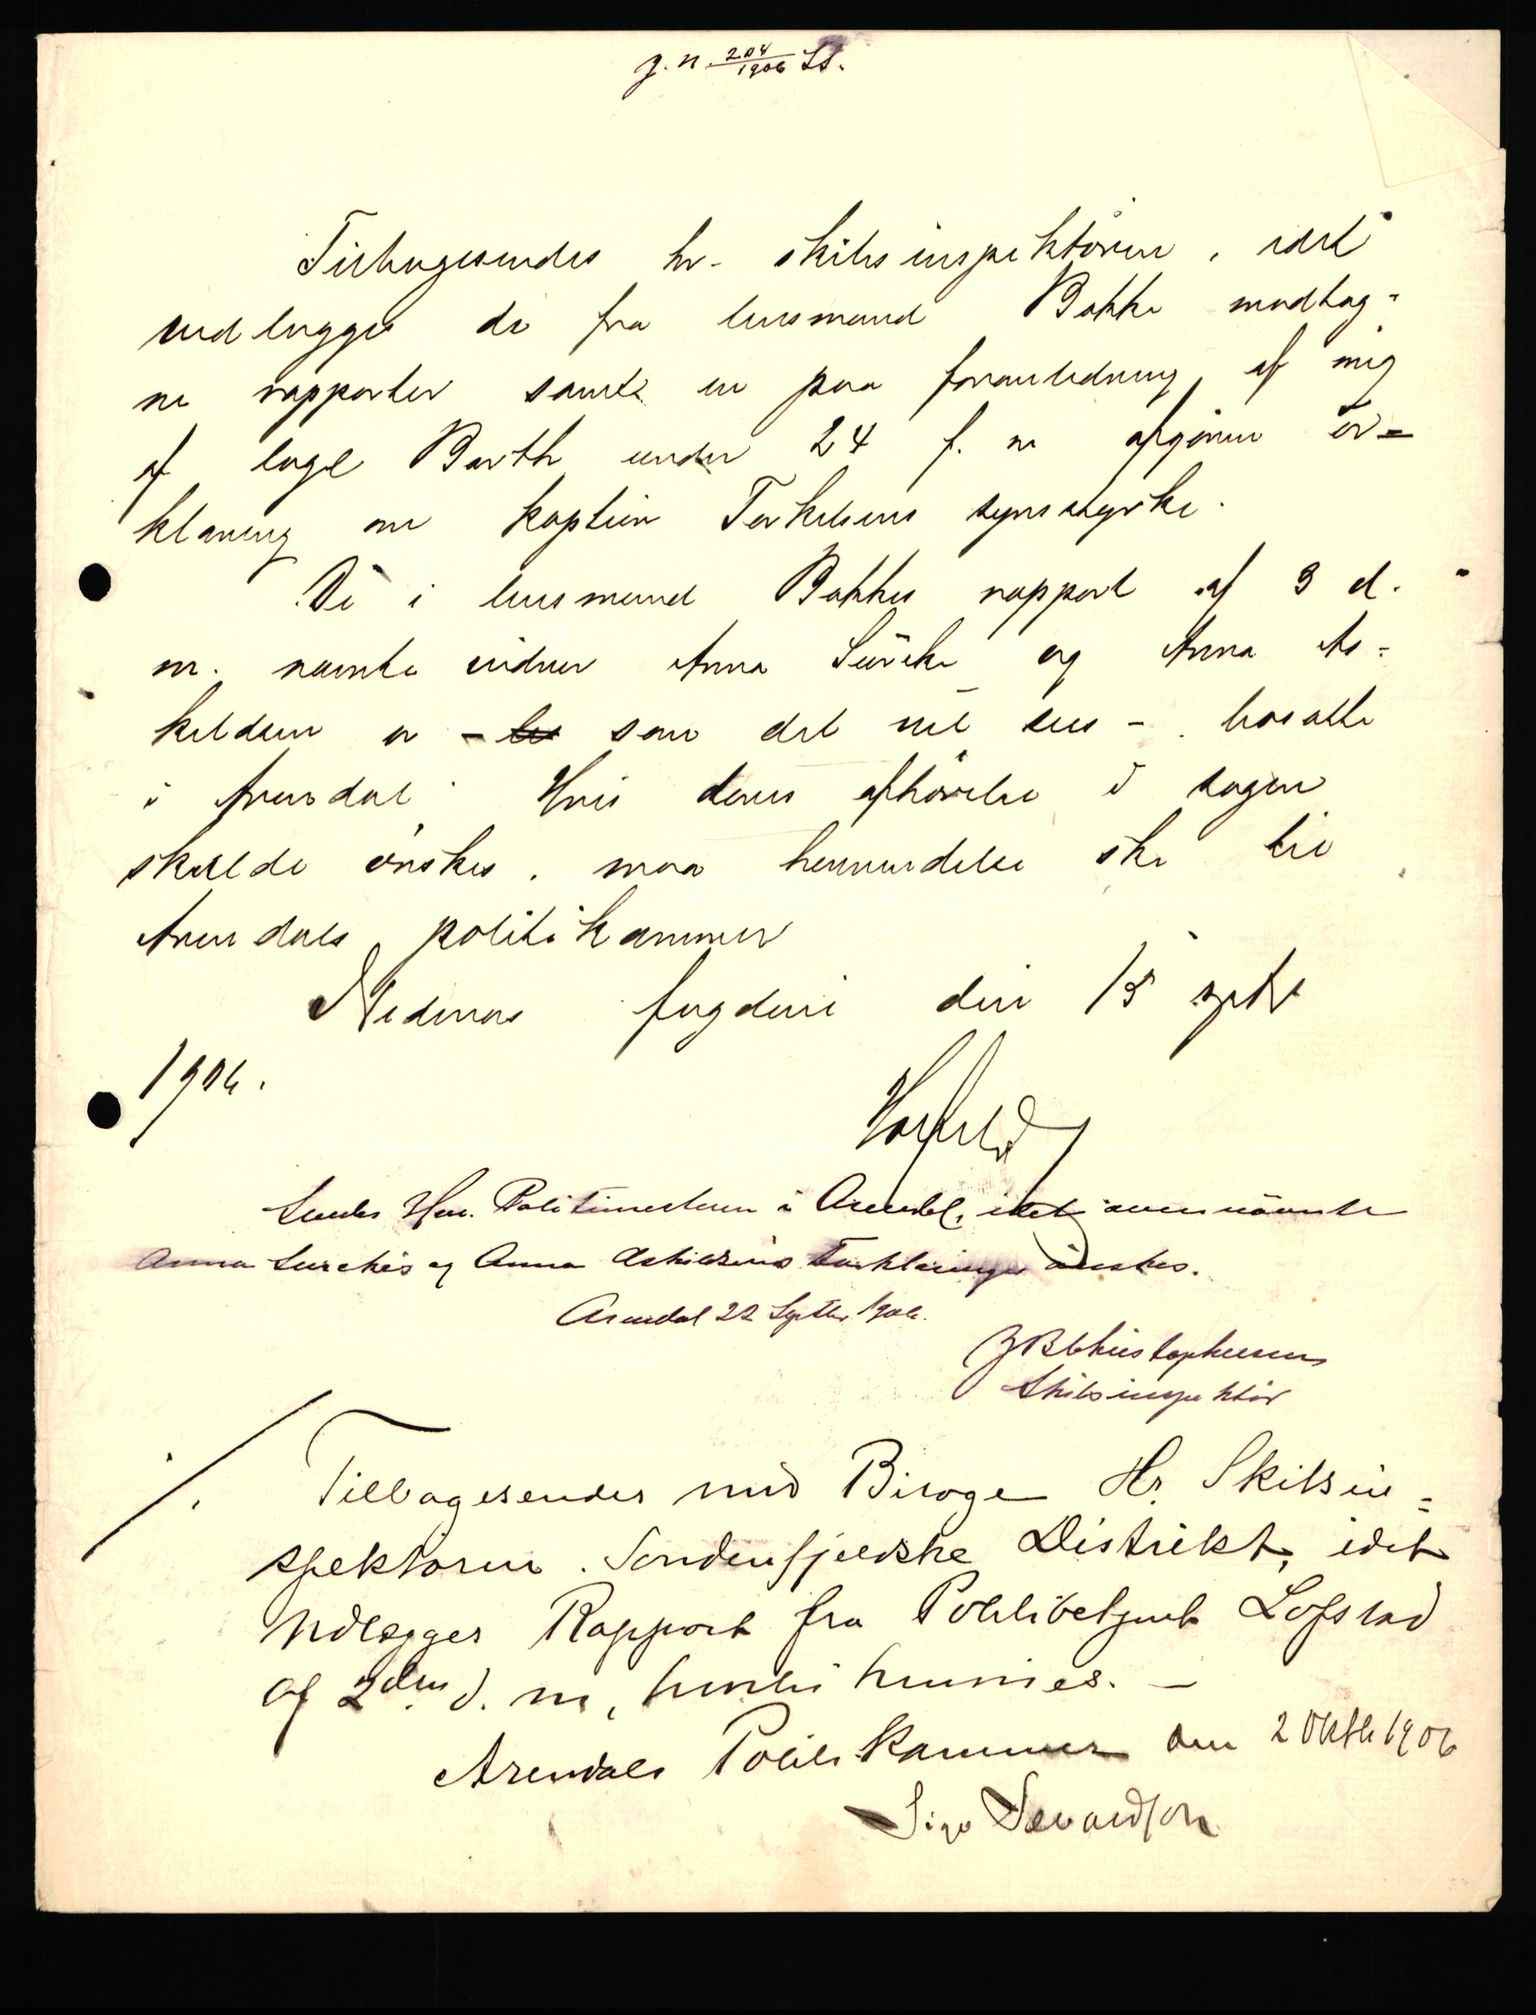 J. n. 204/1906 Ss.
Tilbagesendes hr. skibsinspektören, idet
vedlægges de fra lensmand Bakke modtag-
ne rapporter samt en paa foranledning af mig
af læge Barth under 24 f. m. afgiven er-
klæring om kaptein Terkelsens synsstyrke.
De i lensmand Bakkes rapport af 3 d.
m. nævnte vidner Anna Surcke og Anna As-
kildsen er - som det vil sees - bosatte
i Arendal. Hvis deres afhörelse i sagen
skulde önskes, maa henvendelse ske til
Arendals politikammer
Nedenes fogderi den 15 septbr
1906.
Sendes Hrr. Politimesteren i Arendal, idet ovennævnte
Anna Surckes og Anna Askildsens Forklaringer önskes.
Arendal 22 Septbr. 1906.
JB Christophersen
Skibsinspektör
Tilbagesendes med Bilage Hr. Skibsin=
spektören Søndenfjeldske Distrikt, idet
vedlægges Rapport fra Politibetjent Lofstad
af 2den d. m., hvortil henvises. -
Arendals Politikammer den 2 Oktbr 1906
Sigv Sevaldson